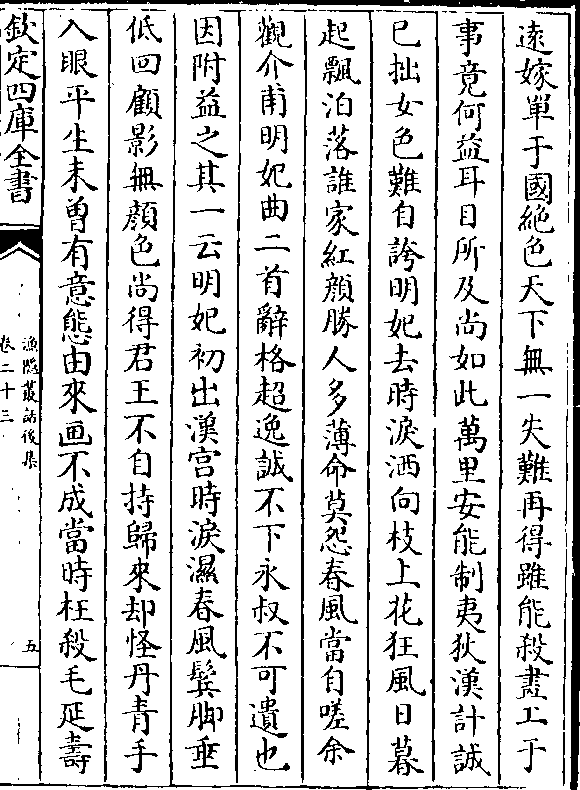 遠嫁單于國絶色天下無一失難再得雖能殺畫工于
事竟何益耳目所及尚如此萬里安能制夷狄漢計誠
已拙女色難自誇明妃去時淚洒向枝上花狂風日暮
起飄泊落誰家紅顔勝人多薄命莫怨春風當自嗟余
觀介甫明妃曲二首辭格超逸誠不下永叔不可遺也
因附益之其一云明妃初出漢宫時淚濕春風鬢脚垂
低回顧影無顔色尚得君王不自持歸來却怪丹青手
入眼平生未曾有意態由來画不成當時枉殺毛延壽
欽定四庫全書
漁隠叢話後集
卷二十三
五